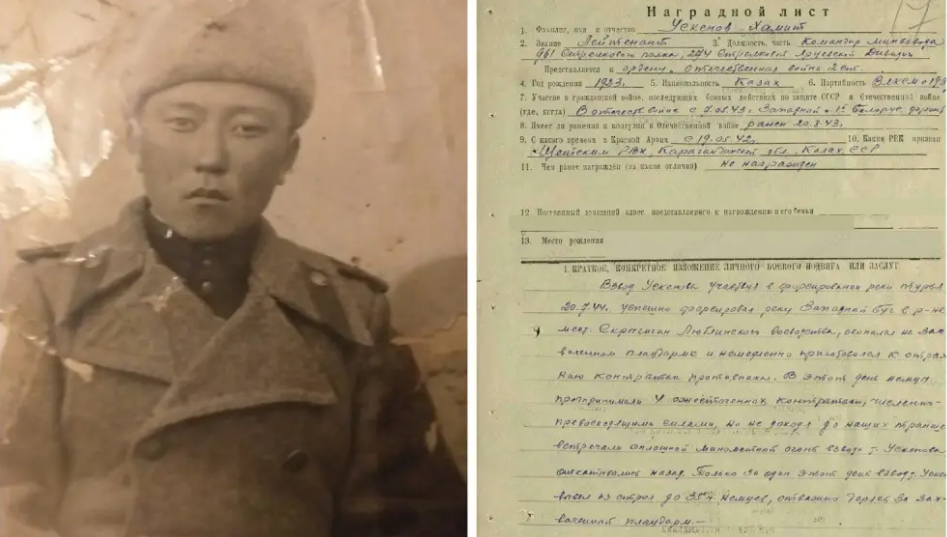 Наградной лист
17
1. Фамилия, имя и отчество Ускенов Хамит
2. Звание Лейтенант 3. Должность, часть Командир минвзвода
Стрелкового полка, 244 Стрелковой дивизии
Представляется к ордену „Отечественная война 2 ст."
4. Год рождения 1923г. 5. Национальность Казах 6. Партийность
7. Участие в гражданской войне, последующих боевых действиях по защите СССР и Отечественной войне
(где, когда) В отечествен. с 7.05.43г. Западной
8. Имеет ли ранения и контузии в Отечественной войне ранен 20.8.43г.
9. С какого времени в Красной Армии С 19.05.42г. 10. Каким РВК призван
РВК, Карагандинской обл., Казах. ССР
11. Чем ранее награждён (за какие отличия) не награжден
12. Постоянный домашний адрес представляемого к награждению и его семьи
13. Место рождения
1. КРАТКОЕ, КОНКРЕТНОЕ ИЗЛОЖЕНИЕ ЛИЧНОГО БОЕВОГО ПОДВИГА ИЛИ ЗАСЛУГ
Взвод Ускенова участвуя в форсировании реки
20.7.44г. успешно форсировал реку Западной Буг в р-не
мест. Люблинского воеводства, окопался на зах-
ваченном плацдарме и немедленно приготовился к отра-
жению контратаки противника. В этот день немцы
предпринимали 4 ожесточенных контратаки, численно-
превосходящими силами, но не доходя до наших транше
встречали сплошной минометный огонь взвода т. Ускенова
откатывались назад. Только за один этот день взвод т. Уске
вывел из строя до 35 немцев, отважно дерясь за зах-
ваченный плацдарм.—